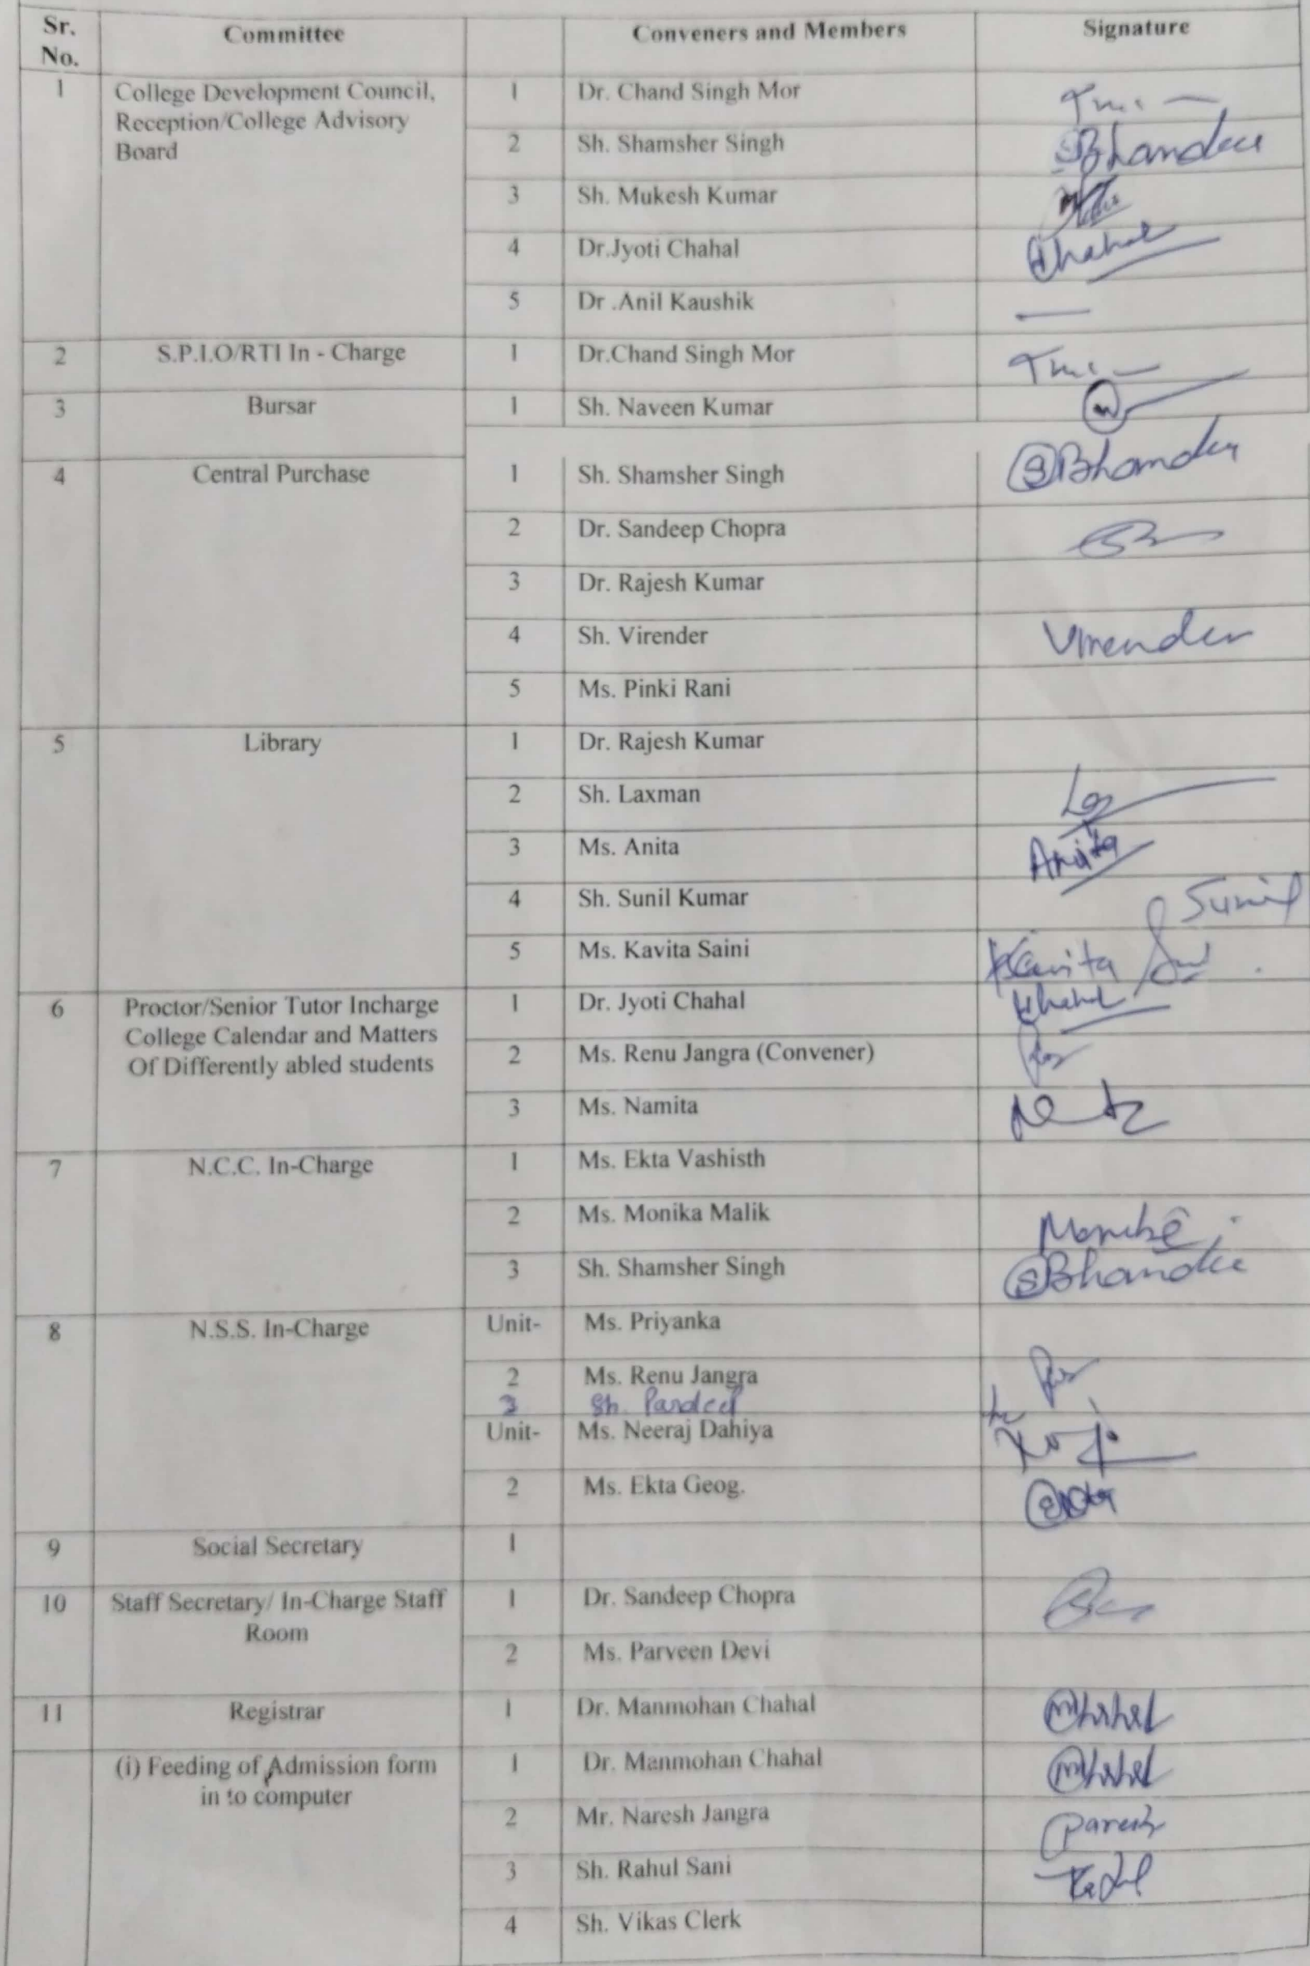 Sr. No. Committee Conveners and Members Signature
1 College Development Council, Reception/College Advisory Board 1 Dr. Chand Singh Mor
2 Sh. Shamsher Singh SBhandu
3 Sh. Mukesh Kumar
4 Dr.Jyoti Chahal Chahal
5 Dr .Anil Kaushik
2 S.P.I.O/RTI In - Charge 1 Dr.Chand Singh Mor
3 Bursar 1 Sh. Naveen Kumar
4 Central Purchase 1 Sh. Shamsher Singh
2 Dr. Sandeep Chopra
3 Dr. Rajesh Kumar
4 Sh. Virender Virender
5 Ms. Pinki Rani
5 Library 1 Dr. Rajesh Kumar
2 Sh. Laxman
3 Ms. Anita Anita
4 Sh. Sunil Kumar Sunil
5 Ms. Kavita Saini Kavita
6 Proctor/Senior Tutor Incharge College Calendar and Matters Of Differently abled students 1 Dr. Jyoti Chahal Chahal
2 Ms. Renu Jangra (Convener)
3 Ms. Namita
7 N.C.C. In-Charge 1 Ms. Ekta Vashisth
2 Ms. Monika Malik
3 Sh. Shamsher Singh
8 N.S.S. In-Charge Unit- Ms. Priyanka
2 Ms. Renu Jangra
3 Sh. Pardeep
Unit- Ms. Neeraj Dahiya
2 Ms. Ekta Geog.
9 Social Secretary 1
10 Staff Secretary/ In-Charge Staff Room 1 Dr. Sandeep Chopra
2 Ms. Parveen Devi
11 Registrar 1 Dr. Manmohan Chahal
(i) Feeding of Admission form in to computer 1 Dr. Manmohan Chahal
2 Mr. Naresh Jangra
3 Sh. Rahul Sani
4 Sh. Vikas Clerk